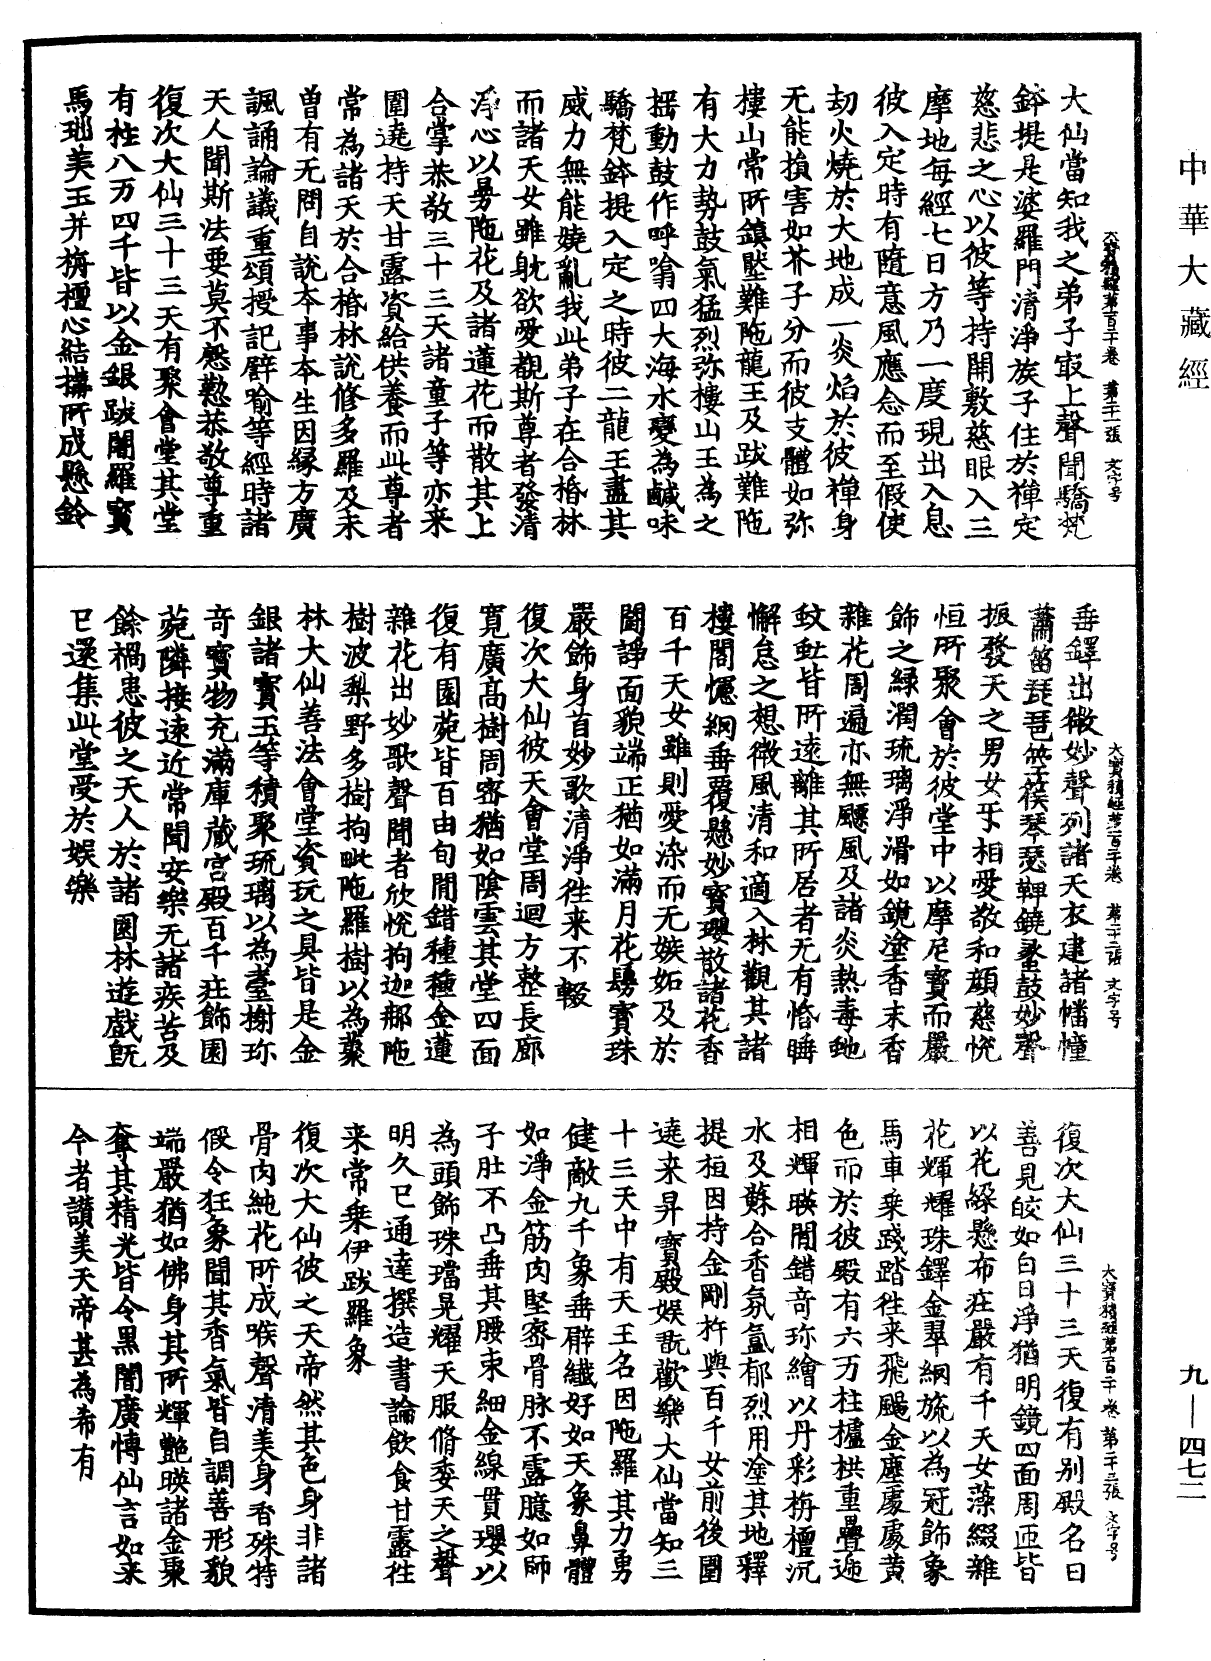 中華大藏經
大寶積經第一百二十卷 第二十一張 文字号
大仙當知我之弟子㝡上聲聞驕梵
鉢提是婆羅門清淨族子住於禪定
慈悲之心以彼等持開敷慈眼入三
摩地每經七日方乃一度現出入息
彼入定時有隨意風應念而至假使
劫火燒於大地成一炎焰於彼禪身
无能損害如芥子分而彼支體如弥
樓山常所鎮壓難陁龍王及跋難陁
有大力勢鼓氣猛烈弥樓山王為之
摇動鼓作呼噏四大海水變為鹹味
驕梵鉢提入定之時彼二龍王盡其
威力無能嬈亂我此弟子在合㨨林
而諸天女雖躭欲愛觀斯尊者發清
淨心以曼陁花及諸蓮花而散其上
合掌恭敬三十三天諸童子等亦来
圍遶持天甘露資給供養而此尊者
常為諸天於合㨨林說修多羅及未
曾有无問自說本事本生因縁方廣
諷誦論議重頌授記譬喻等經時諸
天人聞斯法要莫不慇懃恭敬尊重
復次大仙三十三天有聚會堂其堂
有柱八万四千皆以金銀跋闍羅寶
馬瑙美玉并栴檀心結搆所成懸鈴
大寶積經第一百二十卷 第二十二張 文字号
垂鐸出微妙聲列諸天衣建諸幡幢
簫笛琵琶箜篌琴瑟鞞鐃蠡鼓妙聲
振發天之男女㸦相愛敬和顔慈悦
恒所聚會於彼堂中以摩尼寶而嚴
飾之緑潤琉璃淨滑如鏡塗香末香
雜花周遍亦無飃風及諸炎熱毒虵
蚊䖟皆所遠離其所居者无有惛睡
懈怠之想微風清和適入林觀其諸
樓閣幰綱垂覆懸妙寶瓔散諸花香
百千天女雖則愛染而无嫉妬及於
鬪諍面貌端正猶如滿月花鬘寶珠
嚴飾身首妙歌清淨徃来不輟
復次大仙彼天會堂周迴方整長廊
寬廣高樹周密猶如陰雲其堂四面
復有園苑皆百由旬閒錯種種金蓮
雜花出妙歌聲聞者欣悦拘迦郍陁
樹波梨野多樹拘毗陁羅樹以為藂
林大仙善法會堂資玩之具皆是金
銀諸寶玉等積聚琉璃以為臺榭珎
竒寶物充滿庫藏宫殿百千在飾園
苑隣接逺近常聞安樂无諸疾苦及
餘禍患彼之天人於諸園林遊戲旣
已還集此堂受於娱樂
大寶積經第一百二十卷 第二十三張 文字号
復次大仙三十三天復有别殿名曰
善見皎如白日淨猶明鏡四面周匝皆
以花綵懸布莊嚴有千天女藻綴雜
花輝耀珠鐸金翠網旒以為冠飾象
馬車乘踐踏徃来飛颺金塵霙霙黄
色而於彼殿有六万柱櫨栱重疊逓
相輝暎閒錯竒珎繪以丹彩栴檀沉
水及蘇合香氛氳郁烈用塗其地釋
提桓因持金剛杵與百千女前後圍
遶来昇寶殿娱翫歡樂大仙當知三
十三天中有天王名因陁羅其力勇
健敵九千象垂臂纖好如天象鼻體
如淨金筋肉堅密骨脉不露臆如師
子肚不凸垂其腰束細金線貫瓔以
為頭飾珠璫晃耀天服脩委天之聲
明久已通達撰造書論飲食甘露徃
来常乘伊跋羅象
復次大仙彼之天帝然其色身非諸
骨肉純花所成喉聲清美身香殊特
假令狂象聞其香氣皆自調善形貌
端嚴猶如佛身其所輝艷暎諸金聚
奪其精光皆令黑闇廣慱仙言如来
今者讃美天帝甚為希有
九—四七二